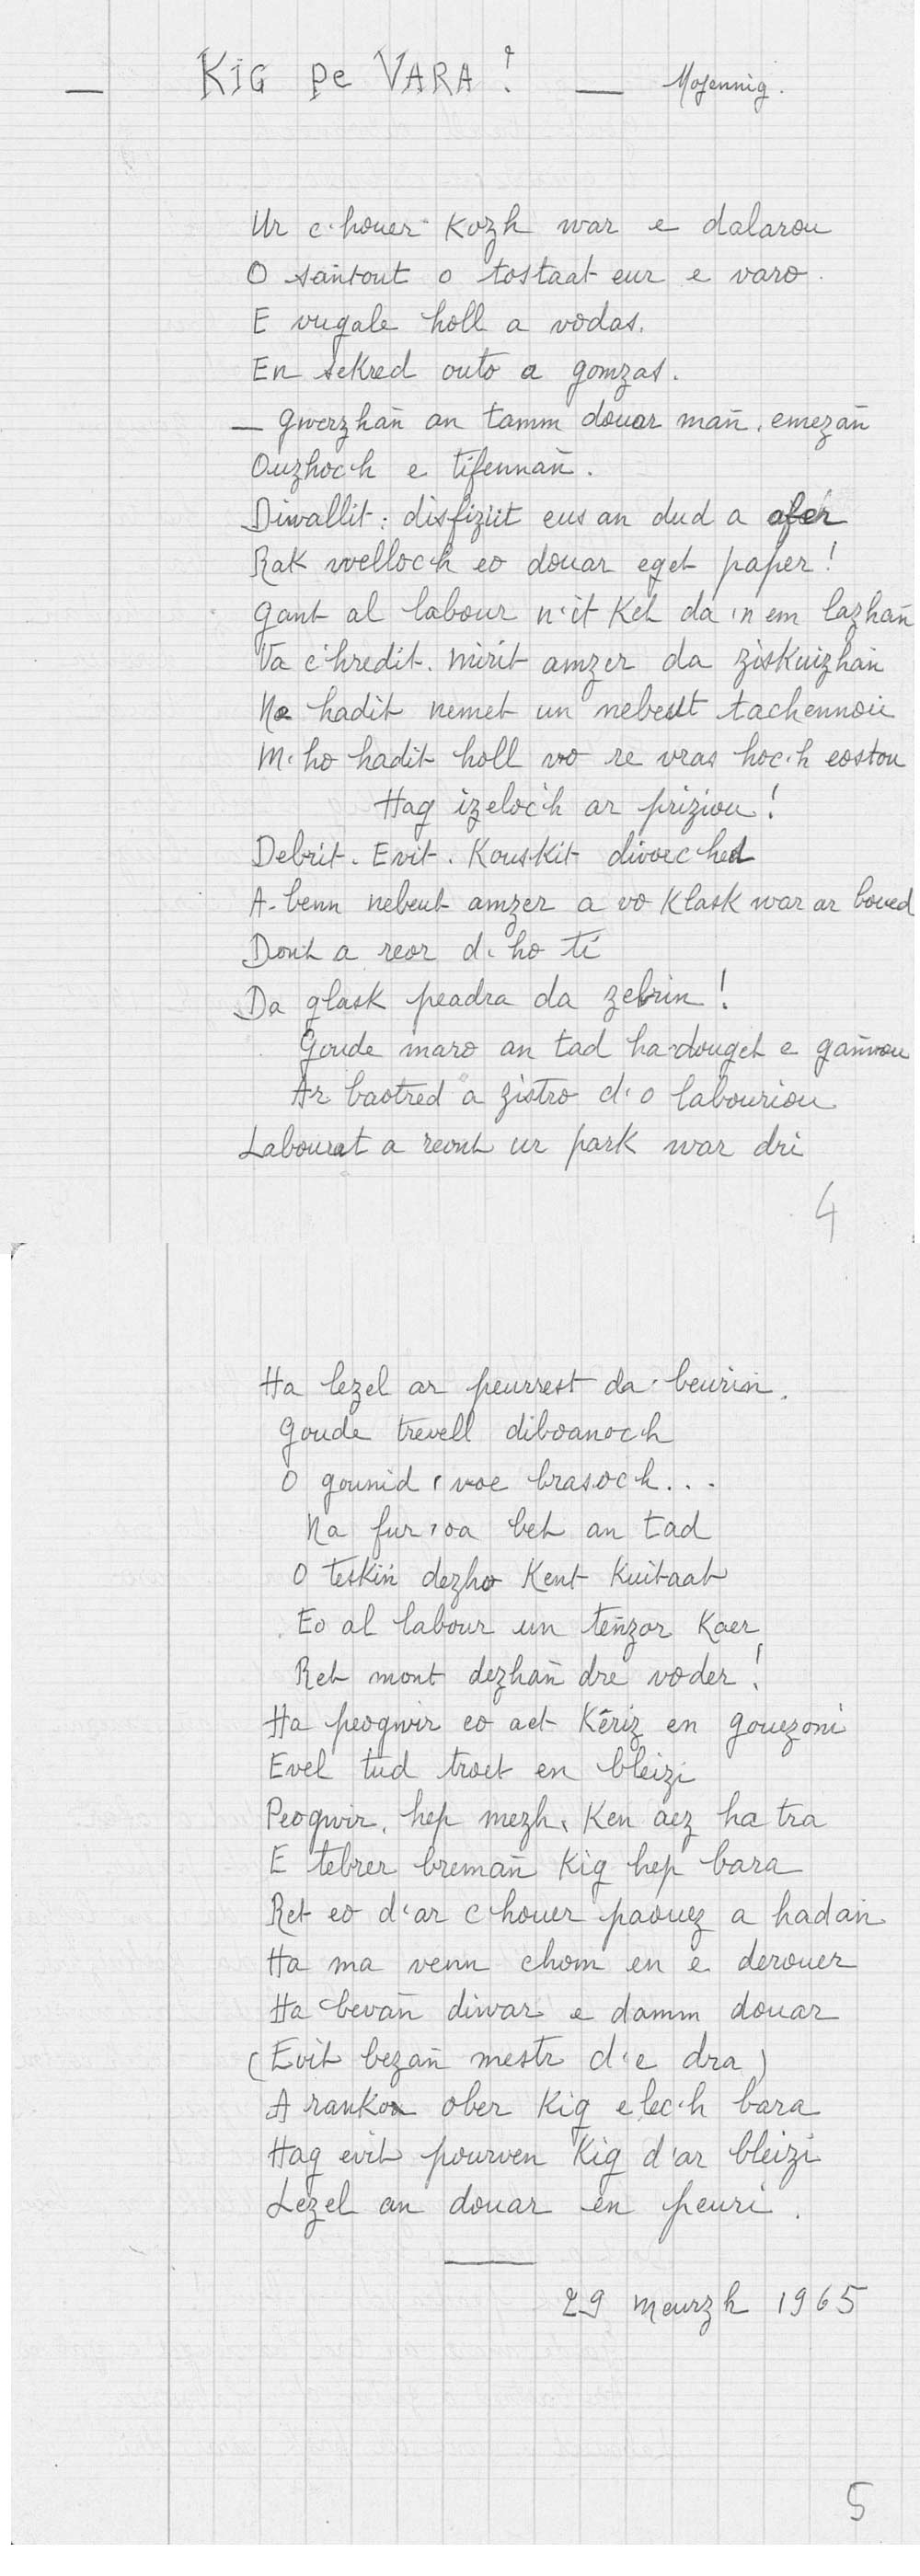 — KIG pe VARA ! — Mojennig.
Ur c'houer kozh war e dalarou
O santout o tostaat eur e varo.
E vugale holl a vodas.
En sekred outo a gomzas.
— Gwerzhañ an tamm douar mañ, emezañ
Ouzhoc'h e tifennañ.
Diwallit : disfiziit eus an dud a afer
Rak welloc'h eo douar eget paper !
Gant al labour n'it ket da 'n em lazhañ
Va c'hredit. Mirit amzer da ziskuizhañ
Na hadit nemet un nebeut tachennoù
M'ho hadit holl vo re vras hoc'h eostou
Hag izeloc'h ar priziou !
Debrit. Evit. Kouskit divorc'hed
A-benn nebeut amzer a vo klask war ar boued
Dont a reor d'ho ti
Da glask peadra da zebriñ !
Goude maro an tad ha douget e gañvou
Ar baotred a zistro d'o labouriou
Labourat a reont ur park war dri
4
Ha lezel ar peurrest da beuriñ.
Goude trevell diboanoc'h
O gounid 'voe brasoc'h...
Na fur 'oa bet an tad
O teskiñ dezho kent kuitaat
Eo al labour un teñzor kaer
Ret mont dezhañ dre voder !
Ha peogwir eo aet Kêriz en gouezoni
Evel tud troet en bleizi
Peogwir, hep mezh, ken aez ha tra
E tebrer bremañ kig hep bara
Ret eo d'ar c'houer paouez a hadañ
Ha ma venn chom en e derouer
Ha bevañ diwar e damm douar
(Evit bezañ mestr d'e dra)
A rankoa ober kig e lec'h bara
Hag evit pourveñ kig d'ar bleizi
Lezel an douar en peuri.
29 meurzh 1965
5